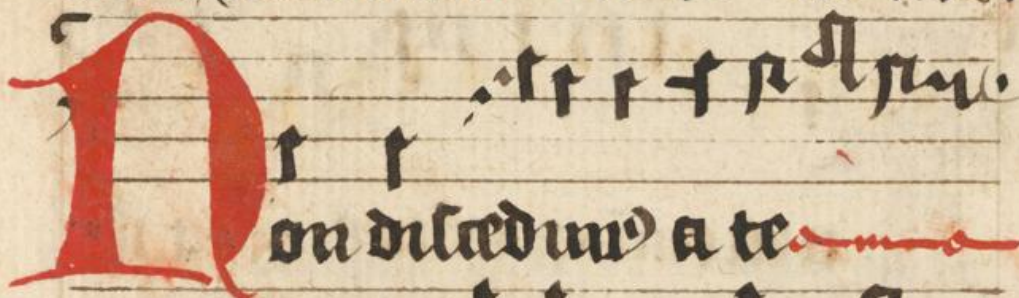 Non discedimꝰ a te